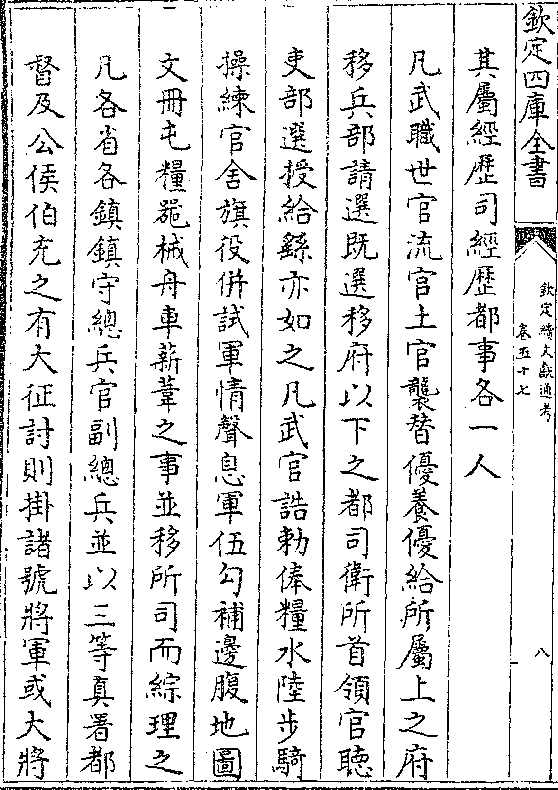 欽定四庫全書
欽定續文獻通考
卷五十七
八
其屬經歷司經歷都事各一人
凡武職世官流官土官襲替優養優給所屬上之府
移兵部請選既選移府以下之都司衛所首領官聽
吏部選授給繇亦如之凡武官誥勅俸糧水陸步騎
操練官舍旗役併試軍情聲息軍伍勾補邊腹地圖
文冊屯糧噐械舟車薪葦之事並移所司而綜理之
凡各省各鎮鎮守總兵官副總兵並以三等真署都
督及公侯伯充之有大征討則掛諸號將軍或大將